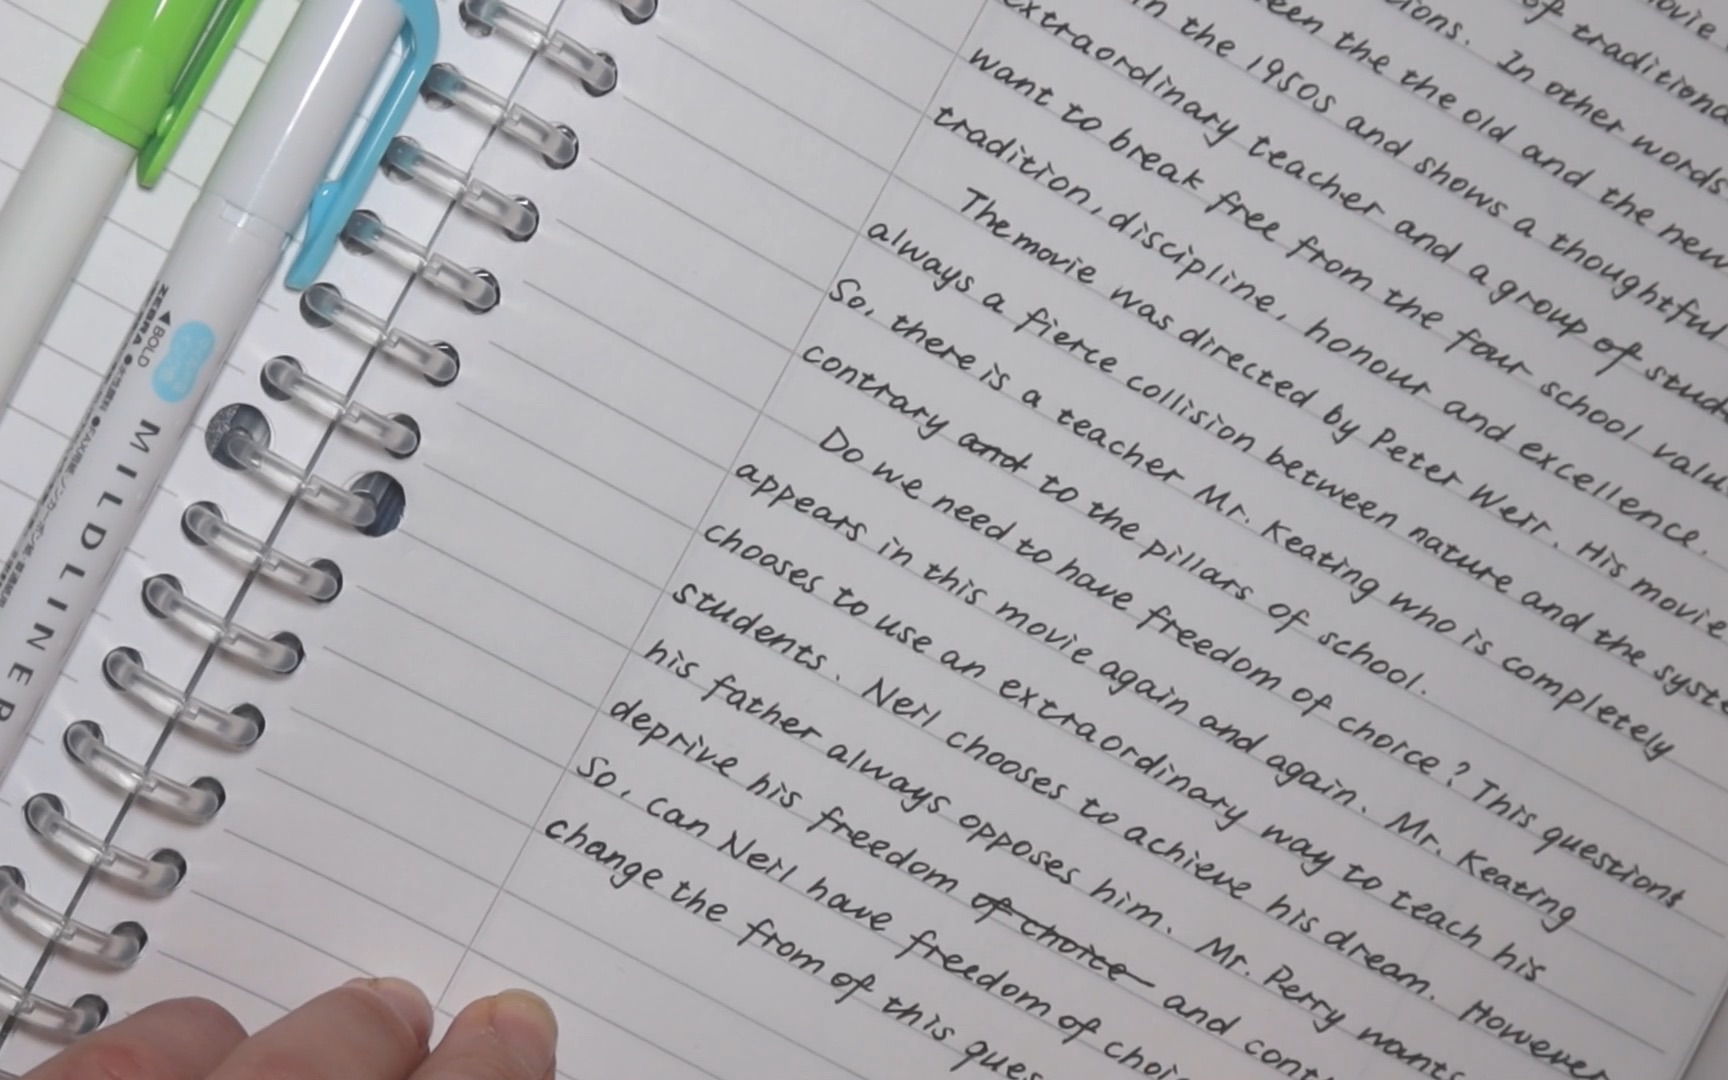 ovie
of traditiona
ions. In other words
een the the old and the new
in the 1950s and shows a thoughtful
extraordinary teacher and a group of stud
want to break free from the four school valu
tradition, discipline, honour and excellence.
The movie was directed by Peter Weir. His movie
always a fierce collision between nature and the syste
So, there is a teacher Mr. Keating who is completely
contrary and to the pillars of school.
Do we need to have freedom of choice? This questions
appears in this movie again and again. Mr. Keating
chooses to use an extraordinary way to teach his
students. Neil chooses to achieve his dream. However
his father always opposes him. Mr. Perry wants
deprive his freedom of choice and cont
So, can Neil have freedom of choi
change the from of this ques
ZEBRA
BOLD
MILDLINER